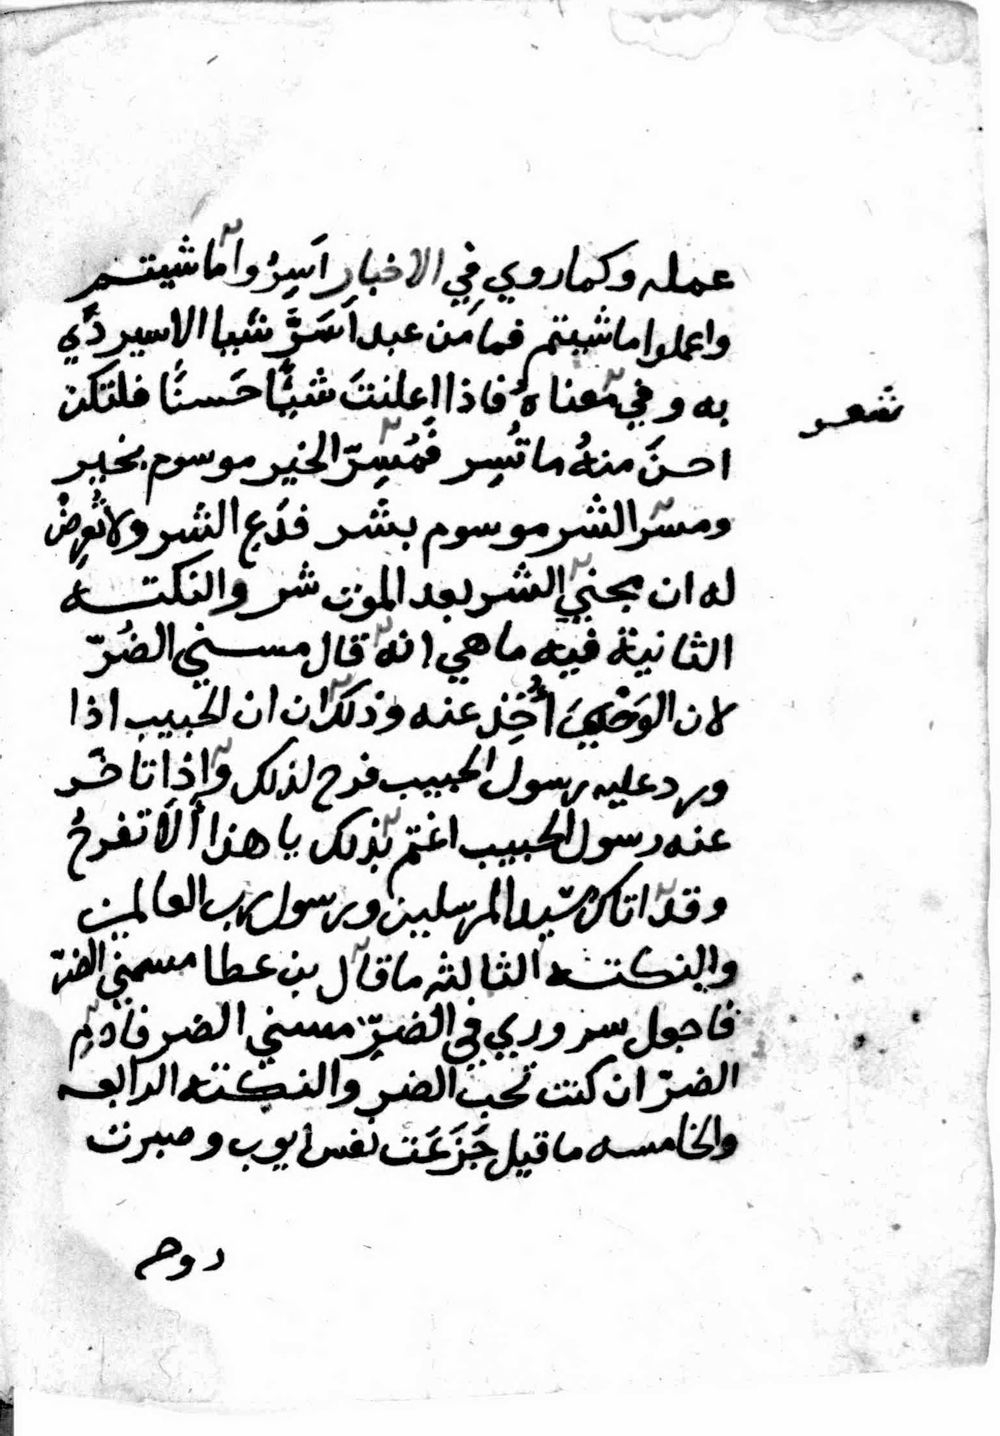 عمله وكما روي في الاخبار اَسِرُوا ما شيتم
واعملوا ما شيتم فما من عبد اَسَرَّ شيبا الا سير دّي
به وفي معناهُ فاذا اعلنتَ شيًّا حَسنًا فلتكن
شعر
احسنَ منهُ ما تُسِر فمُسِرّ الخير موسوم بخير
ومسر الشر موسوم بشر فدَع الشر ولا تُعرِضُ
له ان مجني الشر بعد الموت شر والنكته
الثانية فيه ما هي انه قال مسني الضُرّ
لان الوَحْيَ أُخِذ عنه وذلك ان ان الحبيب اذا
ورد عليه رسول الحبيب فرح لذلك واذا تاخّر
عنه رسول الحبيب اغتم بذلك يا هذا أَلَا تفرحُ
وقد اتاك سيد المرسلين ورسول رب العالمين
والنكته الثالثه ما قال بن عطا مسني الضرّ
فاجعل سروري في الضرِّ مسني الضر فادِم
الضرّ ان كنت تحب الضر والنكته الرابعه
والخامسه ما قيل جَزَعَت نفس ايوب وصبرت
روحه